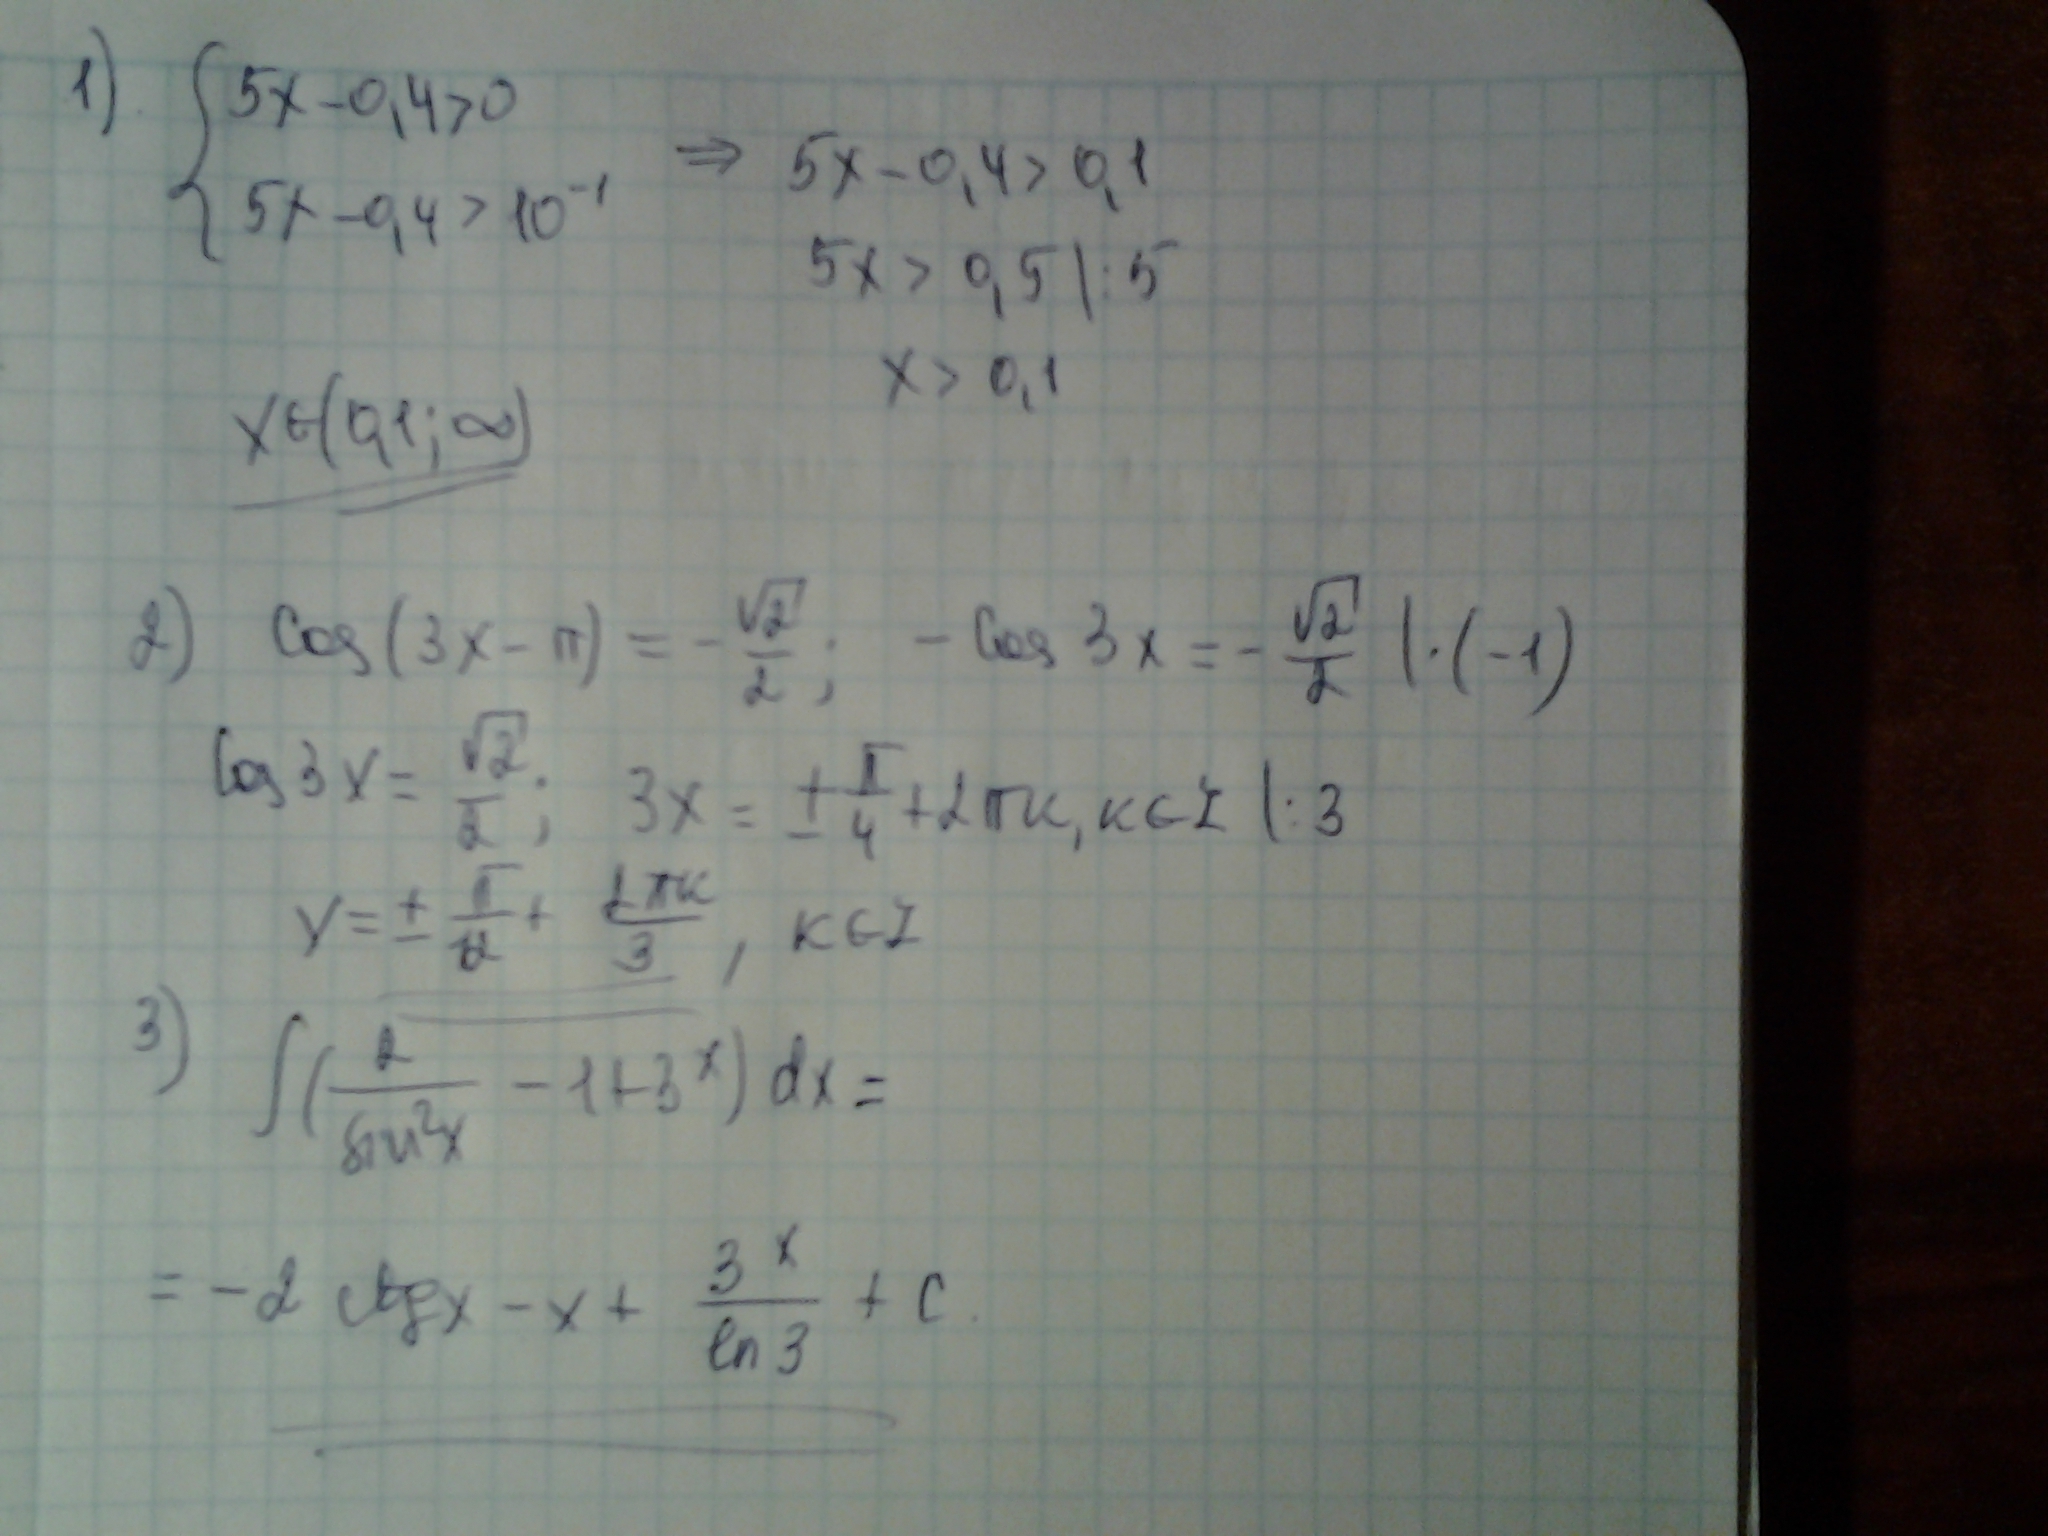 1) { 5x-0,4>0
5x-0,4>10⁻¹ ⇒ 5x-0,4>0,1
5x>0,5 |:5
x>0,1
x∈(0,1;∞)
2) Cos(3x-π)=-√2/2; -Cos 3x=-√2/2 |·(-1)
Cos3x=√2/2; 3x=±π/4+2πк, к∈Z |:3
x=±π/12+2πк/3, к∈Z
3) ∫(2/sin²x-1+3ˣ)dx=
=-2 ctgx-x+3ˣ/ln3+C.